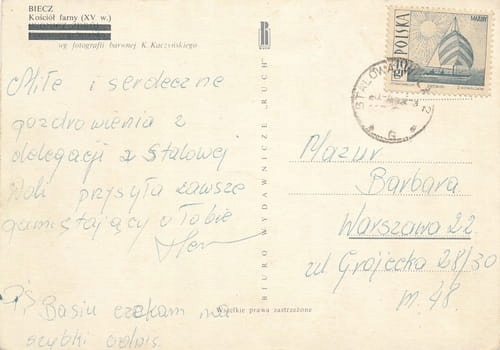 BIECZ
Kościół farny (XV w.)
wg fotografii barwnej K. Kaczyńskiego
Miłe i serdeczne
pozdrowienia z
delegacji z Stalowej
Woli przysyła zawsze
pamiętający o Tobie
PS, Basiu czekam na
szybki odpis.
BIURO WYDAWNICZE „RUCH"
Wszelkie prawa zastrzeżone
POLSKA
STALOWA WOLA
G
Mazur
Barbara
Warszawa 22.
ul Grójecka 28/30
m. 48.